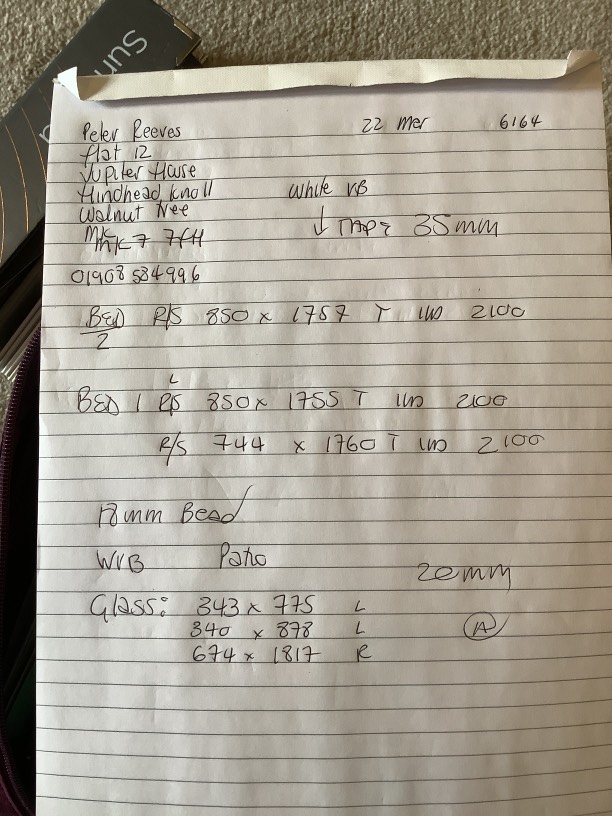 Sun
Peter Reeves 22 Mar 6164
flat 12
Jupiter House
Hindhead Knoll White VB
Walnut Tree
MK7 7FH ↓ 35mm
01908 584996
BED R/S 850 x 1757 T 2100
2
L
BED 1 R/S 850 x 1755 T 2100
R/S 744 x 1760 T 2100
18mm Bead
WVB Patio
20mm
Glass: 343 x 775 L
340 x 878 L A
674 x 1817 R